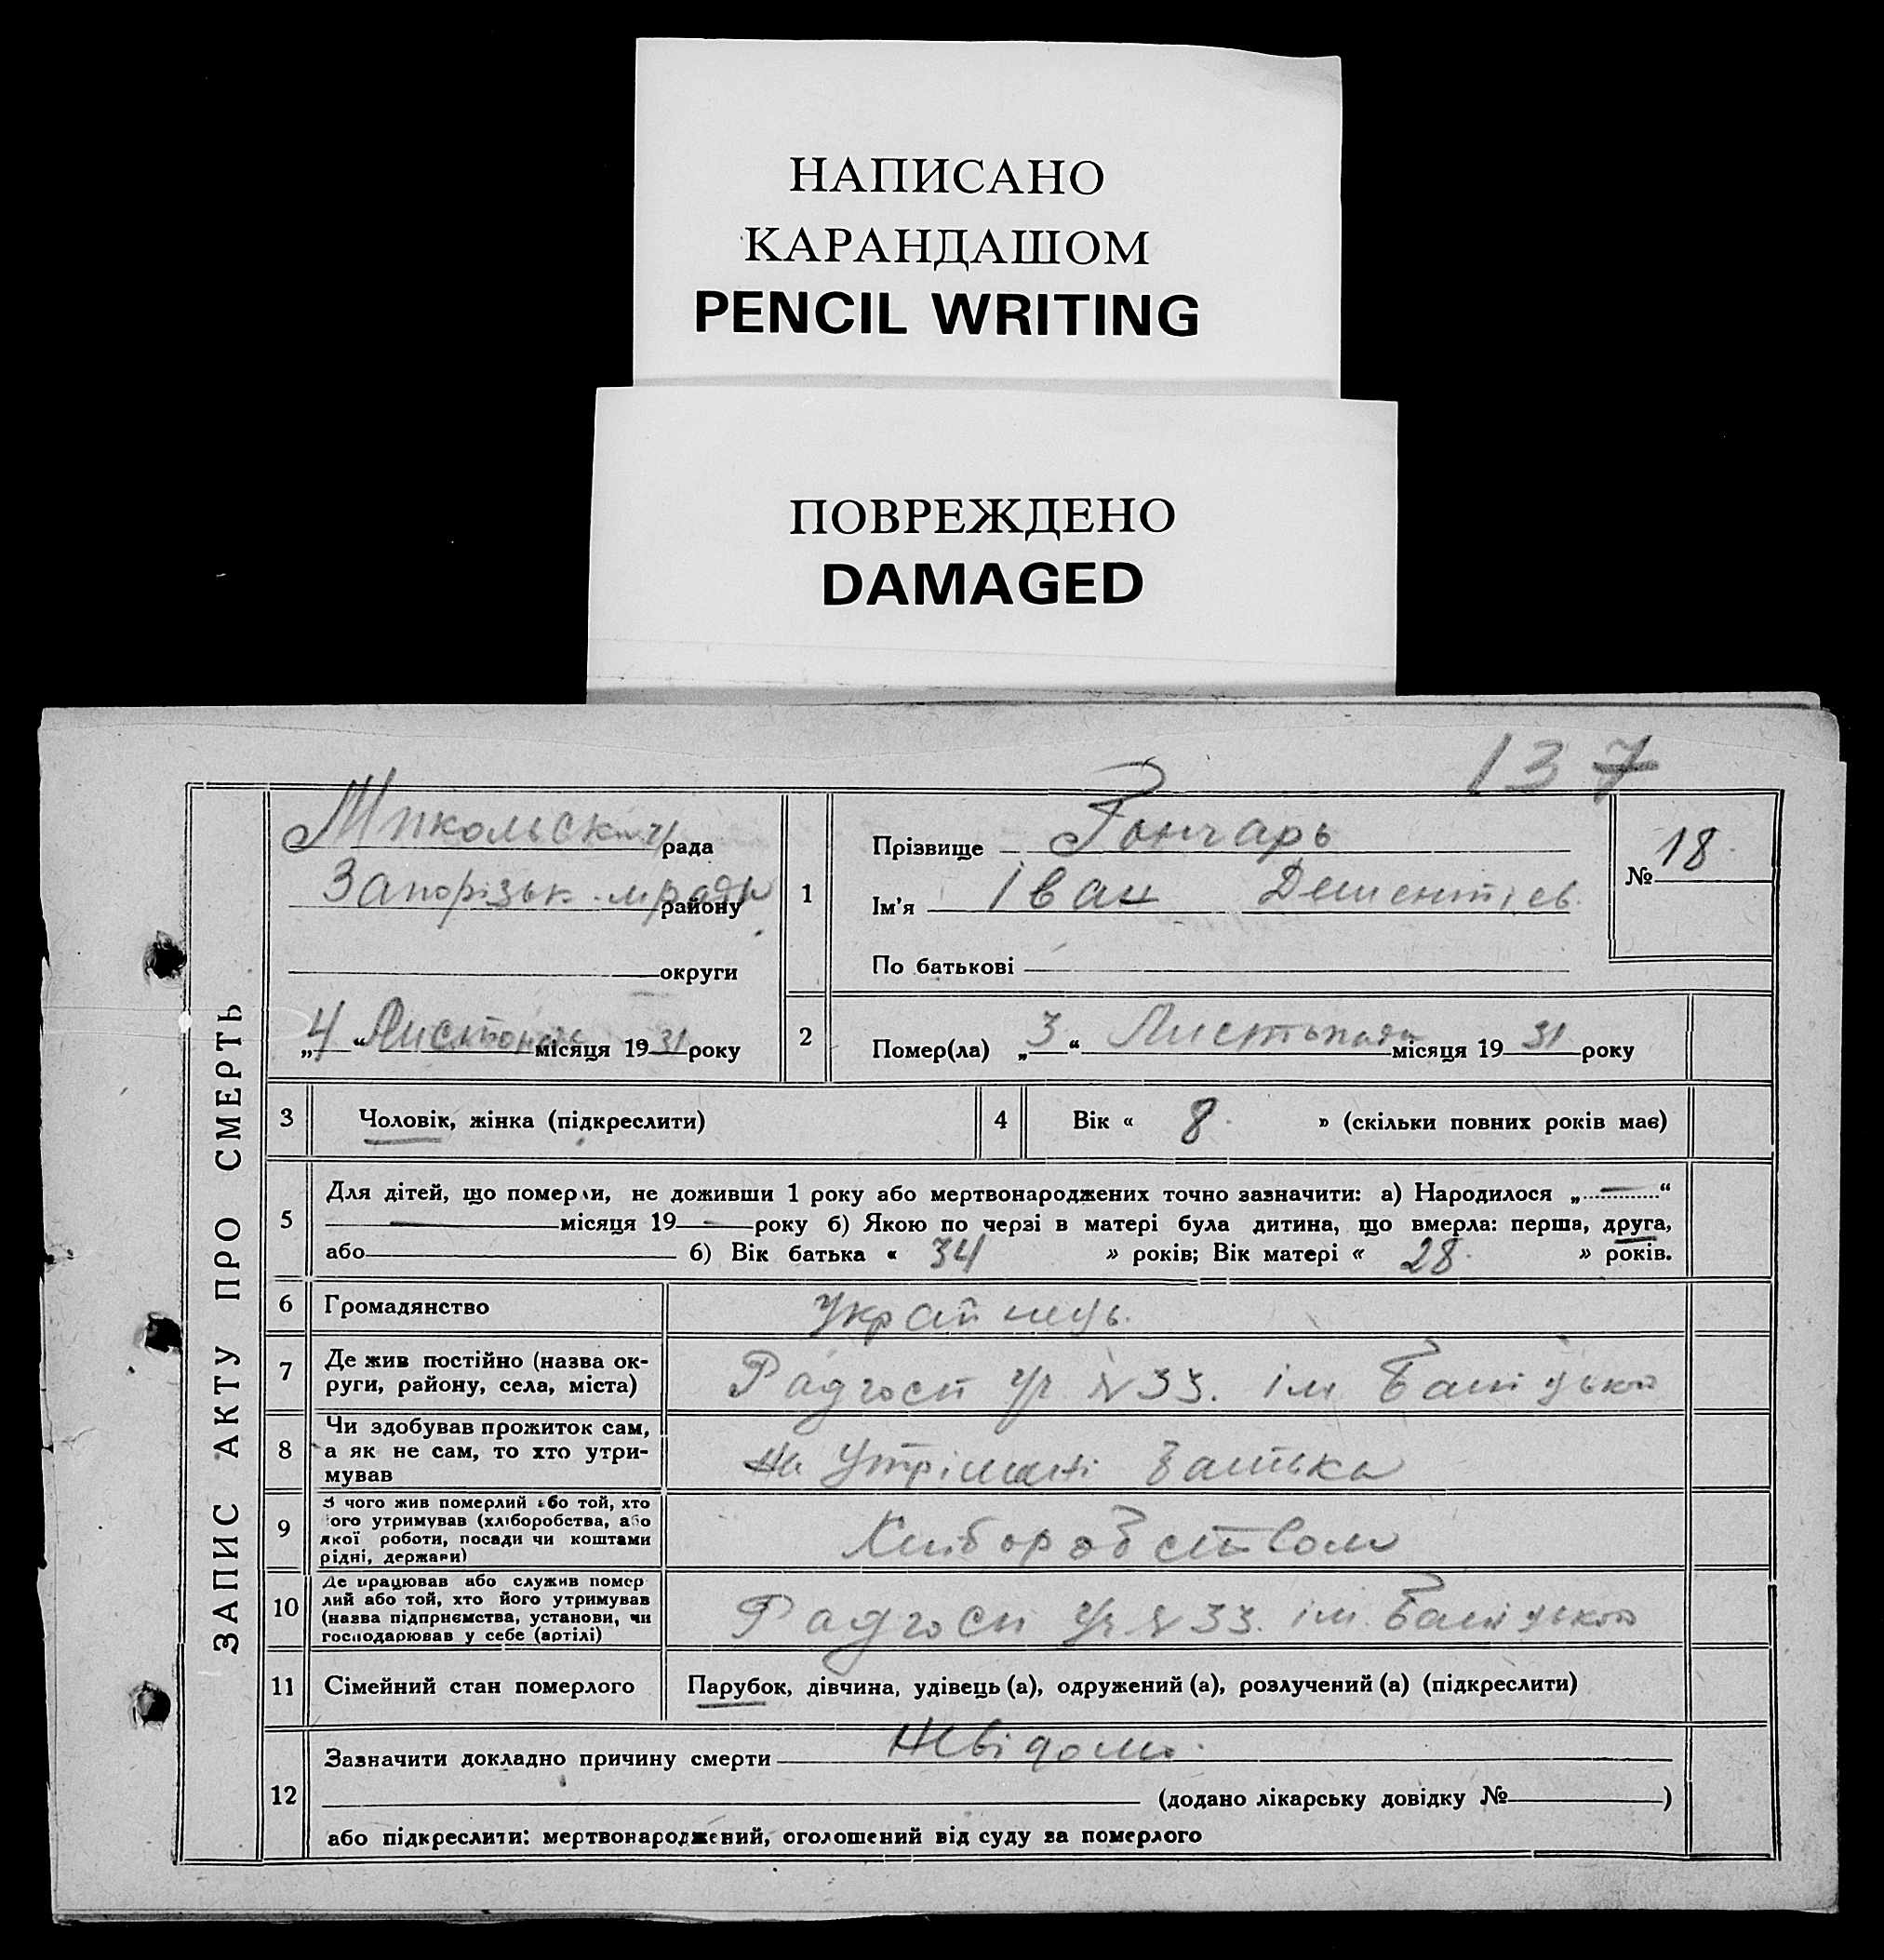 НАПИСАНО
КАРАНДАШОМ
PENCIL WRITING
ПОВРЕЖДЕНО
DAMAGED
137
ЗАПИС АКТУ ПРО СМЕРТЬ
Микольськи рада
Запорізьк. м/ради району
округи
„4“ Листопада місяця 1931 року
1
Прізвище Гончарь
Ім'я Іван Дементієв.
По батькові
№ 18
2
Помер(ла) „3“ Листопада місяця 1931 року
3 Чоловік, жінка (підкреслити)
4 Вік « 8 » (скільки повних років має)
5
Для дітей, що померли, не доживши 1 року або мертвонароджених точно зазначити: а) Народилося „—“
— місяця 19 — року б) Якою по черзі в матері була дитина, що вмерла: перша, друга,
або б) Вік батька « 34 » років; Вік матері « 28 » років.
6 Громадянство Українець.
7 Де жив постійно (назва ок-
руги, району, села, міста)
Радгосп Уч №33. ім.
8 Чи здобував прожиток сам,
а як не сам, то хто утри-
мував
На Утрімані батька
9 З чого жив померлий або той, хто
його утримував (хліборобства, або
якої роботи, посади чи коштами
рідні, держави)
Хліборобством
10 Де працював або служив помер
лий або той, хто його утримував
(назва підприємства, установи, чи
господарював у себе (артілі)
Радгосп Уч №33. ім.
11 Сімейний стан померлого Парубок, дівчина, удівець (а), одружений (а), розлучений (а) (підкреслити)
12
Зазначити докладно причину смерти Невідомо.
(додано лікарську довідку № )
або підкреслити: мертвонароджений, оголошений від суду за померлого